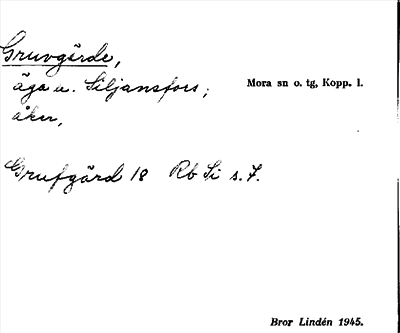 Gruvgärde,
äga u. Siljansfors; Mora sn o. tg, Kopp. l.
åker,
Grufgärd 18 Rb Si s. 7.
Bror Lindén 1945.